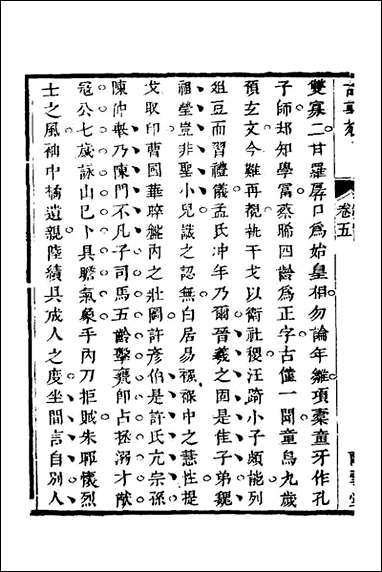 卷五
雙寡二甘羅孱口為始皇相勿論年雖項橐童牙作孔
子師却知學富蔡晞四齡為正字古僅一聞童烏九歲
預玄文今難再覩執干戈以衛社稷汪踦小子頗能列
俎豆而習禮儀孟氏冲年乃爾晉羲之固是佳子弟魏
祖瑩豈非聖小兒識之認無白居易襁褓中之慧性提
戈取印曹國華晬盤內之壯圖許彥伯是許氏亢宗孫
陳仲舉乃陳門不凡子司馬五齡擊甕師占拯溺才猷
冠公七歲詠山已卜具瞻氣象手內刀拒賊朱鄆懷烈
士之風袖中橘遺親陸績具成人之度坐間言自別人